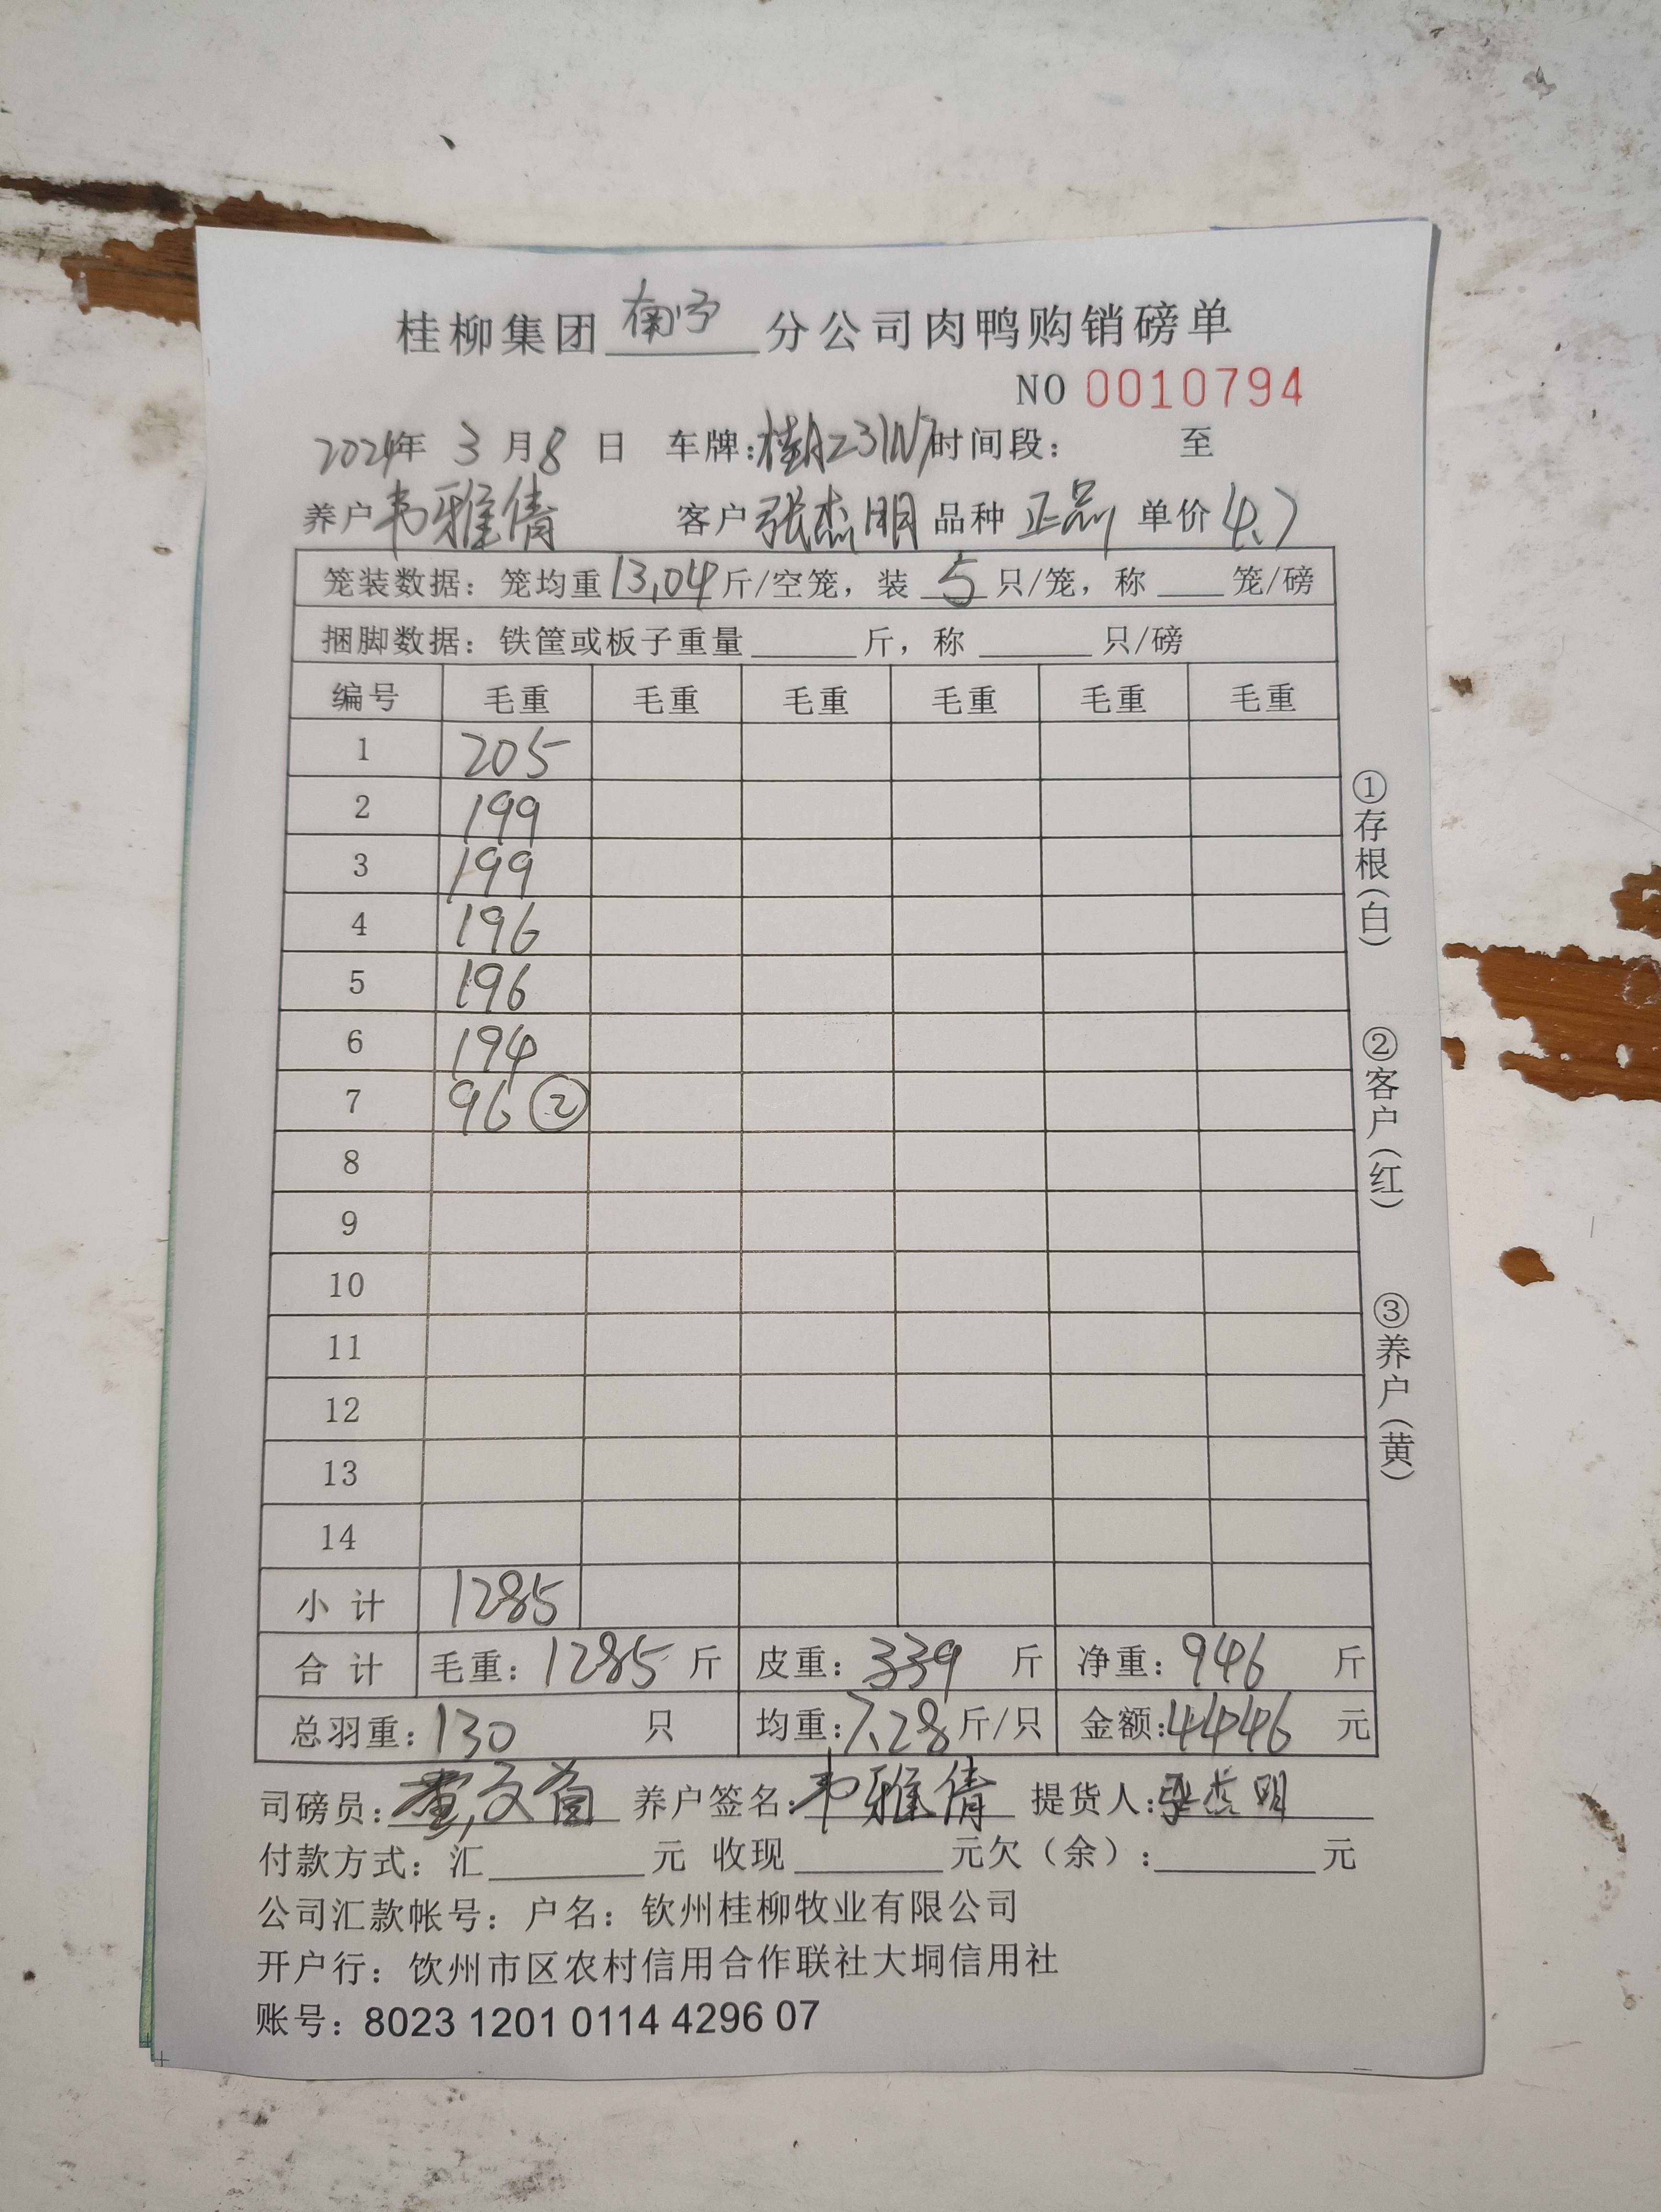 桂柳集团 南宁 分公司肉鸭购销磅单
NO 0010794
2024年 3 月 8 日 车牌:桂A231N7 时间段: 至
养户 韦雅倩 客户 张杰明 品种 正品 单价 4.7
笼装数据: 笼均重 13.04 斤/空笼, 装 5 只/笼, 称 笼/磅
捆脚数据: 铁筐或板子重量 斤, 称 只/磅
编号 毛重 毛重 毛重 毛重 毛重 毛重
1 205
2 199
3 199
4 196
5 196
6 194
7 96 ②
8
9
10
11
12
13
14
小计 1285
合计 毛重: 1285 斤 皮重: 339 斤 净重: 946 斤
总羽重: 130 只 均重: 7.28 斤/只 金额: 4446 元
司磅员: 养户签名: 韦雅倩 提货人: 张杰明
付款方式: 汇 元 收现 元欠(余): 元
公司汇款帐号: 户名: 钦州桂柳牧业有限公司
开户行: 钦州市区农村信用合作联社大垌信用社
账号: 8023 1201 0114 4296 07
①存根(白) ②客户(红) ③养户(黄)